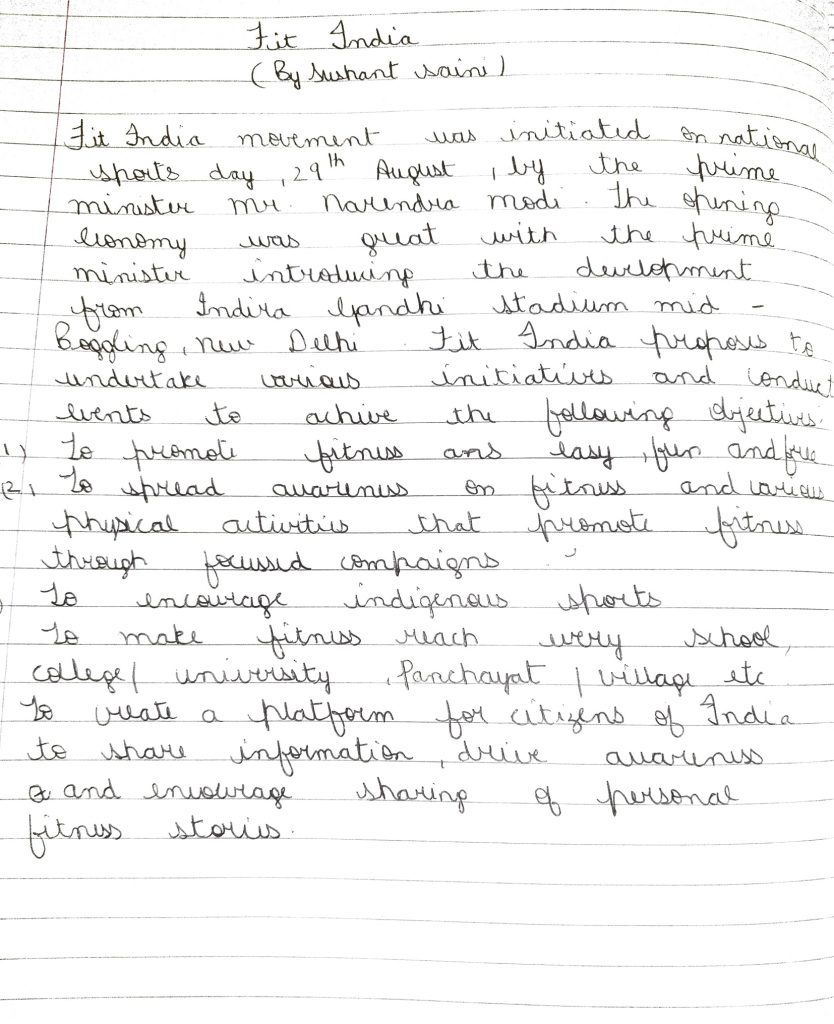 Fit India
(By Sushant saini)
Fit India movement was initiated on national
sports day, 29th August, by the prime
minister mr. Narendra modi. The opening
economy was great with the prime
minister introducing the development
from Indira Gandhi stadium mid -
Boggling, new Delhi. Fit India proposes to
undertake various initiatives and conduct
events to achive the following objectives.
1) To promote fitness ans easy, fun and free
(2) To spread awareness on fitness and various
physical activities that promote fitness
through focussed compaigns
To encourage indigenous sports
To make fitness reach every school,
college/ university, Panchayat / village etc
To create a platform for citizens of India
to share information, drive awareness
and encourage sharing of personal
fitness stories.